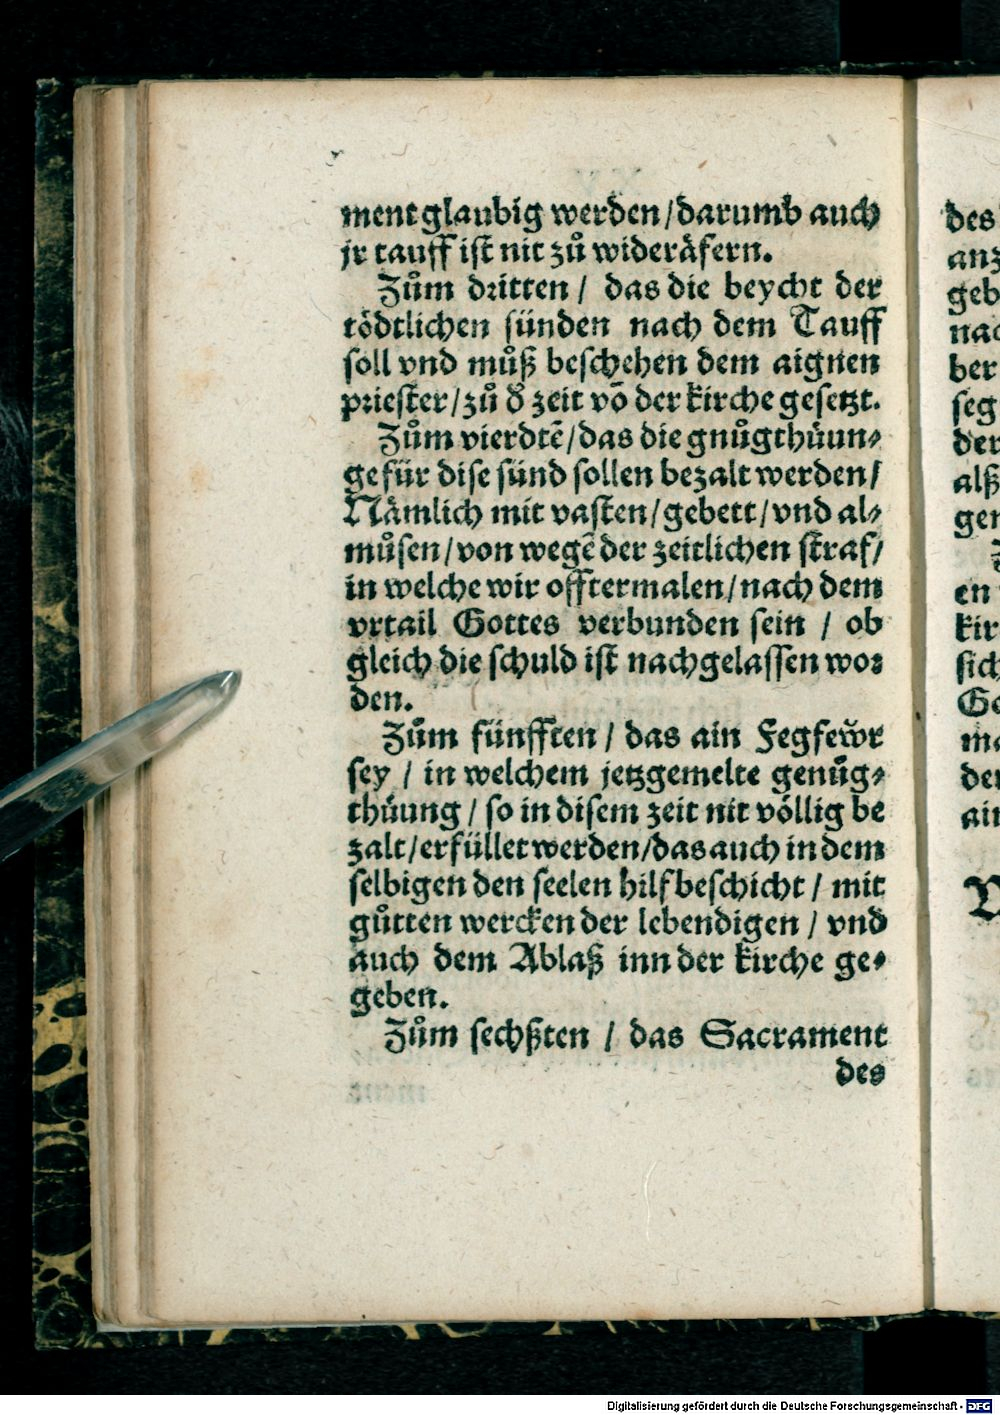 ment glaubig werden / darumb auch
jr tauff ist nit zů wideråfern.
Zům dritten / das die beycht der
tödtlichen sünden nach dem Tauff
soll vnd můß beschehen dem aignen
priester / zů d' zeit võ der kirche gesetzt.
Zům vierdtẽ / das die gnůgthůun⸗
ge für dise sünd sollen bezalt werden /
Nämlich mit vasten / gebett / vnd al⸗
můsen / von wegẽ der zeitlichen straf /
in welche wir offtermalen / nach dem
vrtail Gottes verbunden sein / ob
gleich die schuld ist nachgelassen wor
den.
Zům fünfften / das ain Fegfewr
sey / in welchem jetzgemelte genůg⸗
thůung / so in disem zeit nit völlig be
zalt / erfüllet werden / das auch in dem
selbigen den seelen hilf beschicht / mit
gůtten wercken der lebendigen / vnd
auch dem Ablaß inn der kirche ge⸗
geben.
Zům sechßten / das Sacrament
des
des
geb
ber
seg
der
alß
gen
en
kir
sich
Go
ma
der
ain
Digitalisierung gefördert durch die Deutsche Forschungsgemeinschaft - DFG